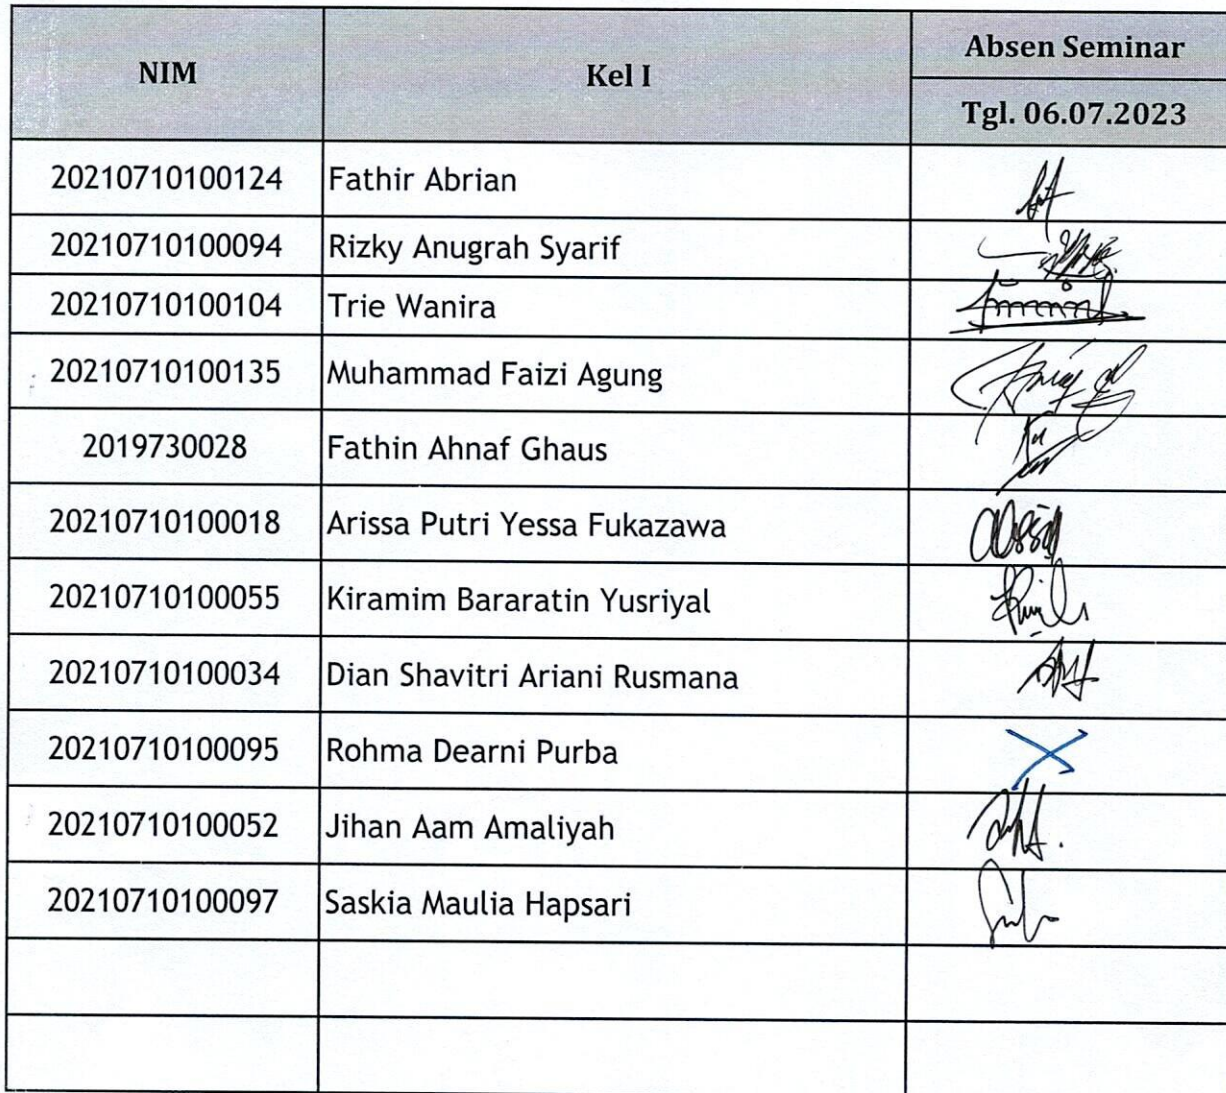 NIM Kel I Absen Seminar
Tgl. 06.07.2023
20210710100124 Fathir Abrian
20210710100094 Rizky Anugrah Syarif
20210710100104 Trie Wanira
20210710100135 Muhammad Faizi Agung
2019730028 Fathin Ahnaf Ghaus
20210710100018 Arissa Putri Yessa Fukazawa
20210710100055 Kiramim Bararatin Yusriyal
20210710100034 Dian Shavitri Ariani Rusmana
20210710100095 Rohma Dearni Purba
20210710100052 Jihan Aam Amaliyah
20210710100097 Saskia Maulia Hapsari